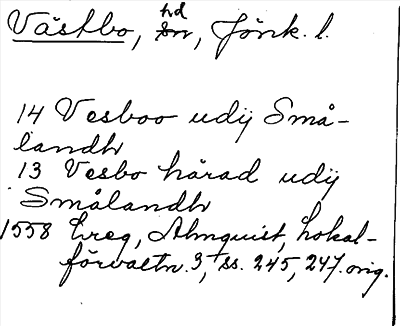 Västbo, hd, Jönk. l.
14 Vesboo udij Små-
landh
13 Vesbo härad udij
Smålandh
1558 Ereg, Almquist, Lokal-
förvaltn. 3, ss. 245, 247. orig.